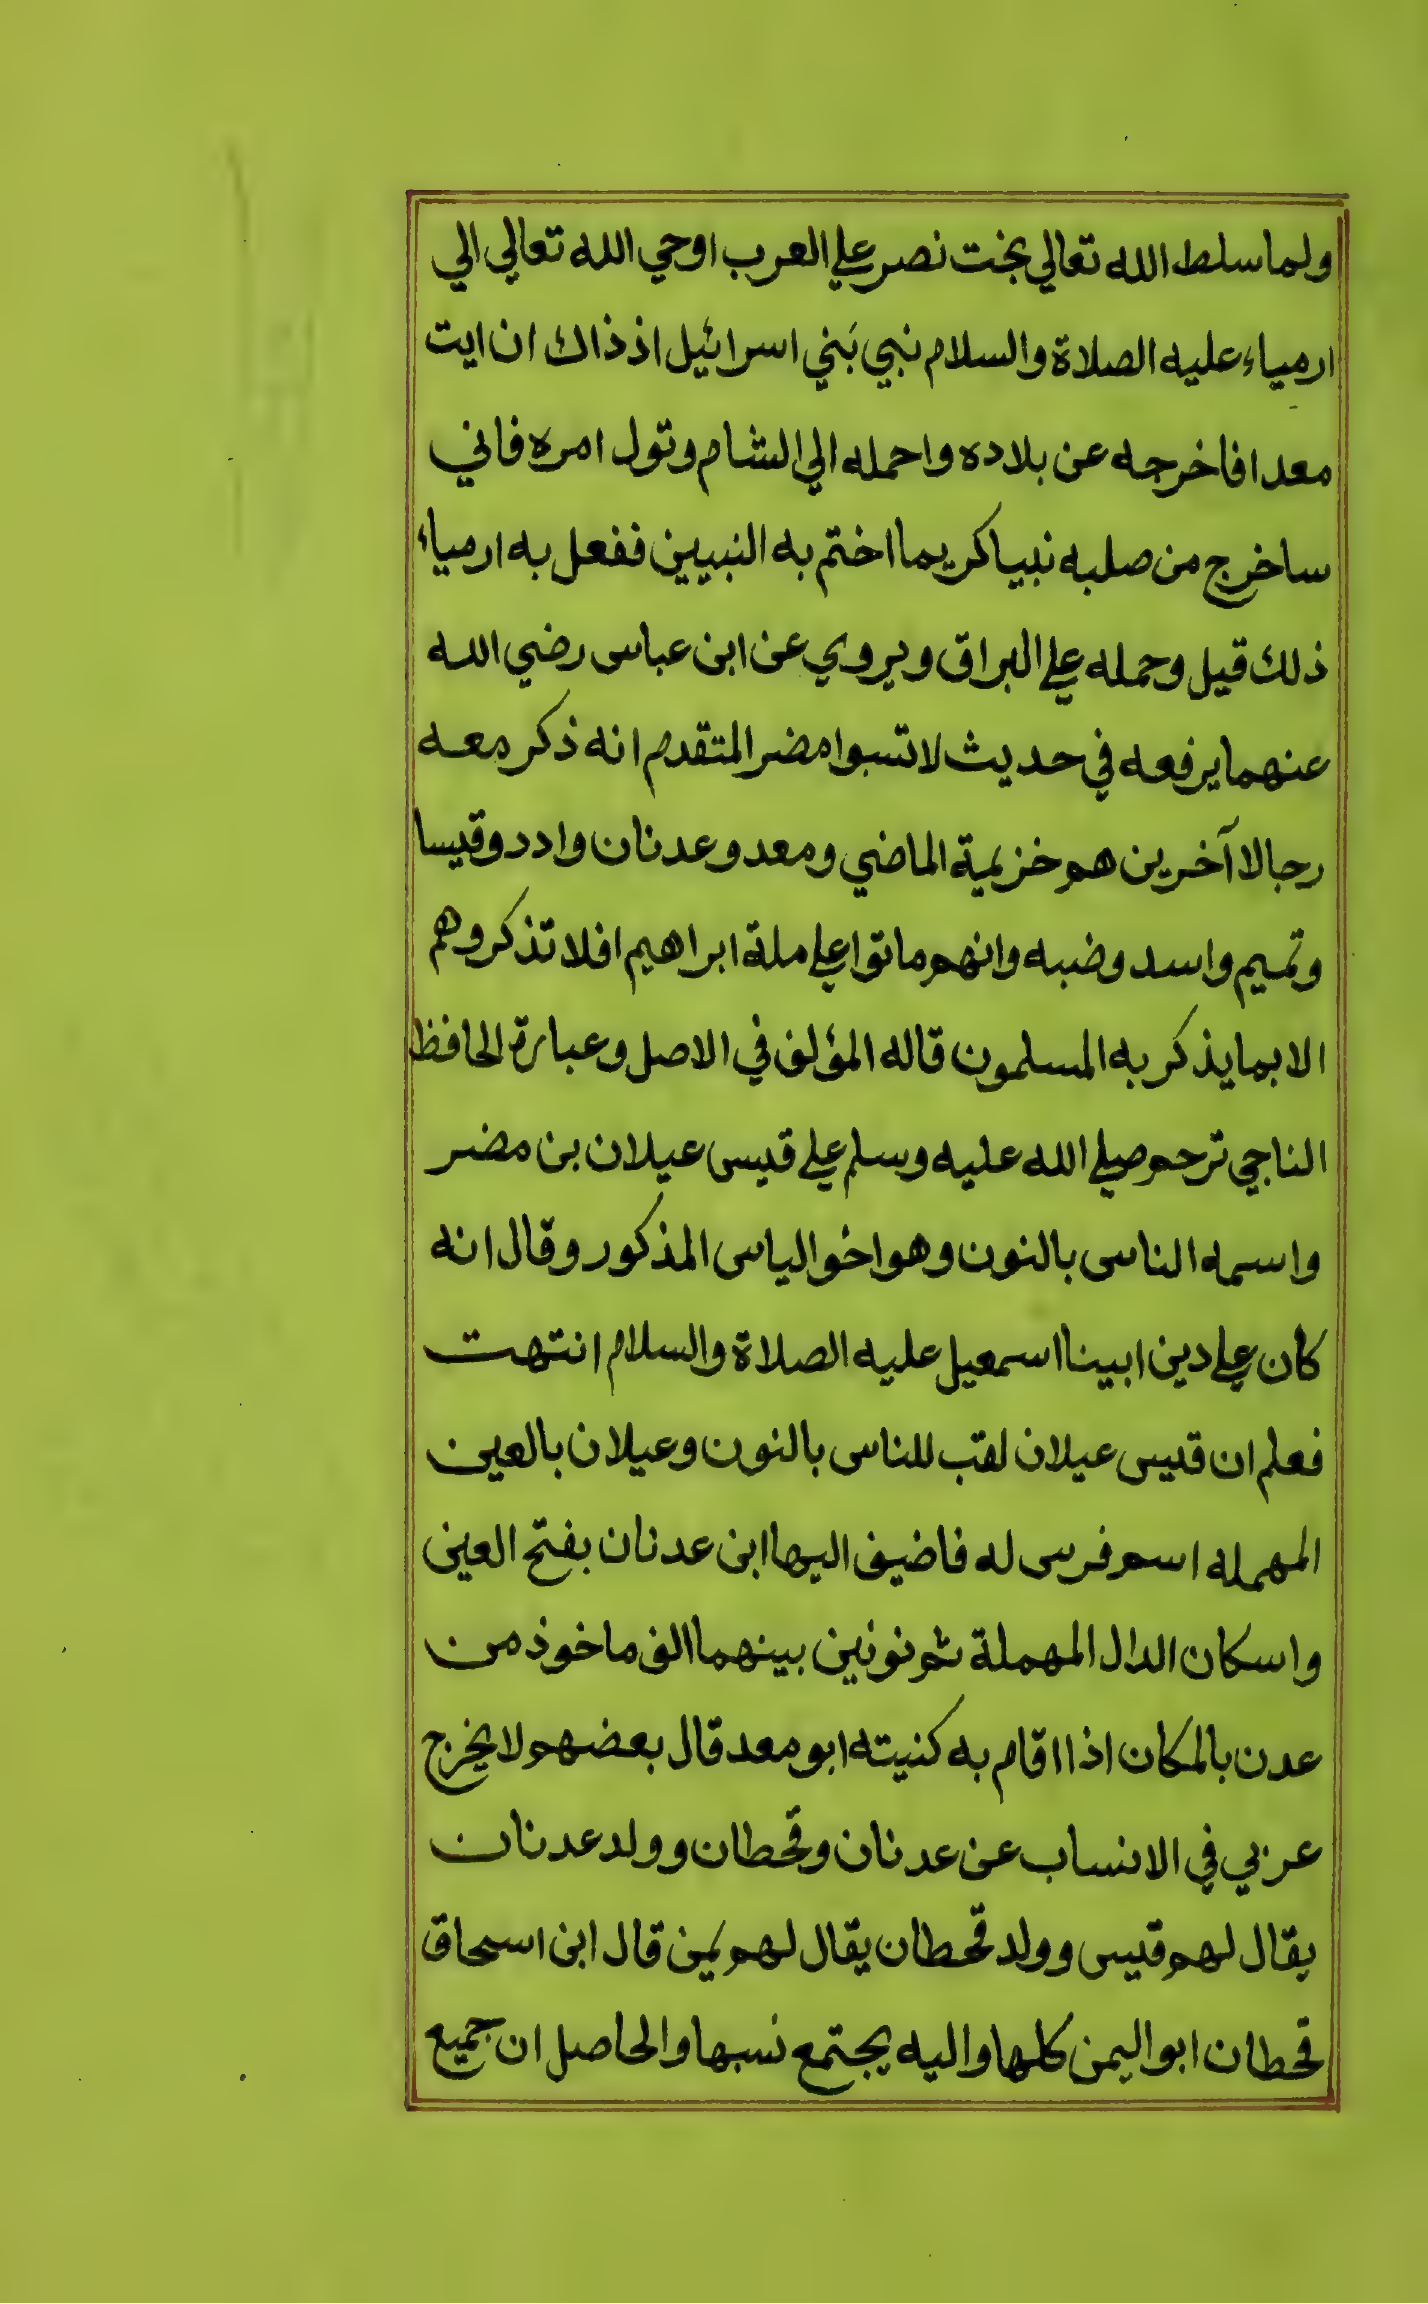 ولما سلط الله تعالي بخت نصر علي العرب اوحي الله تعالي الي
ارمياء عليه الصلاة والسلام نبي بَني اسرائيل اذ ذاك ان ايت
معدا فاخرجه عن بلاده واحمله الي الشام وتول امره فاني
ساخرج من صلبه نبيا كريما اختم به النبيين ففعل به ارمياء
ذلك قيل وحمله علي البراق ويروي عن ابن عباس رضي الله
عنهما يرفعه في حديث لا تسبوا مضر المتقدم انه ذكر معه
رجالا آخرين هم خزيمة الماضي ومعد وعدنان وادد وقيسا
وتميم واسد وضبه وانهم ماتوا علي ملة ابراهيم افلا تذكروهم
الا بما يذكر به المسلمون قاله المؤلف في الاصل وعبارة الحافظ
الناجي ترحم صلي الله عليه وسلم علي قيس عيلان بن مضر
واسمه الناس بالنون وهو اخو الياس المذكور وقال انه
كان علي دين ابينا اسمعيل عليه الصلاة والسلام انتهت
فعلم ان قيس عيلان لقب للناس بالنون وعيلان بالعين
المهمله اسم فرس له فاضيف اليها ابن عدنان بفتح العين
واسكان الدال المهملة ثم نونين بينهما الف ماخوذ من
عدن بالمكان اذا اقام به كنيته ابو معد قال بعضهم لا يخرج
عربي في الانساب عن عدنان وقحطان وولد عدنان
يقال لهم قيس وولد قحطان يقال لهم يمن قال ابن اسحاق
قحطان ابو اليمن كلها واليه يجتمع نسبها والحاصل ان جميع